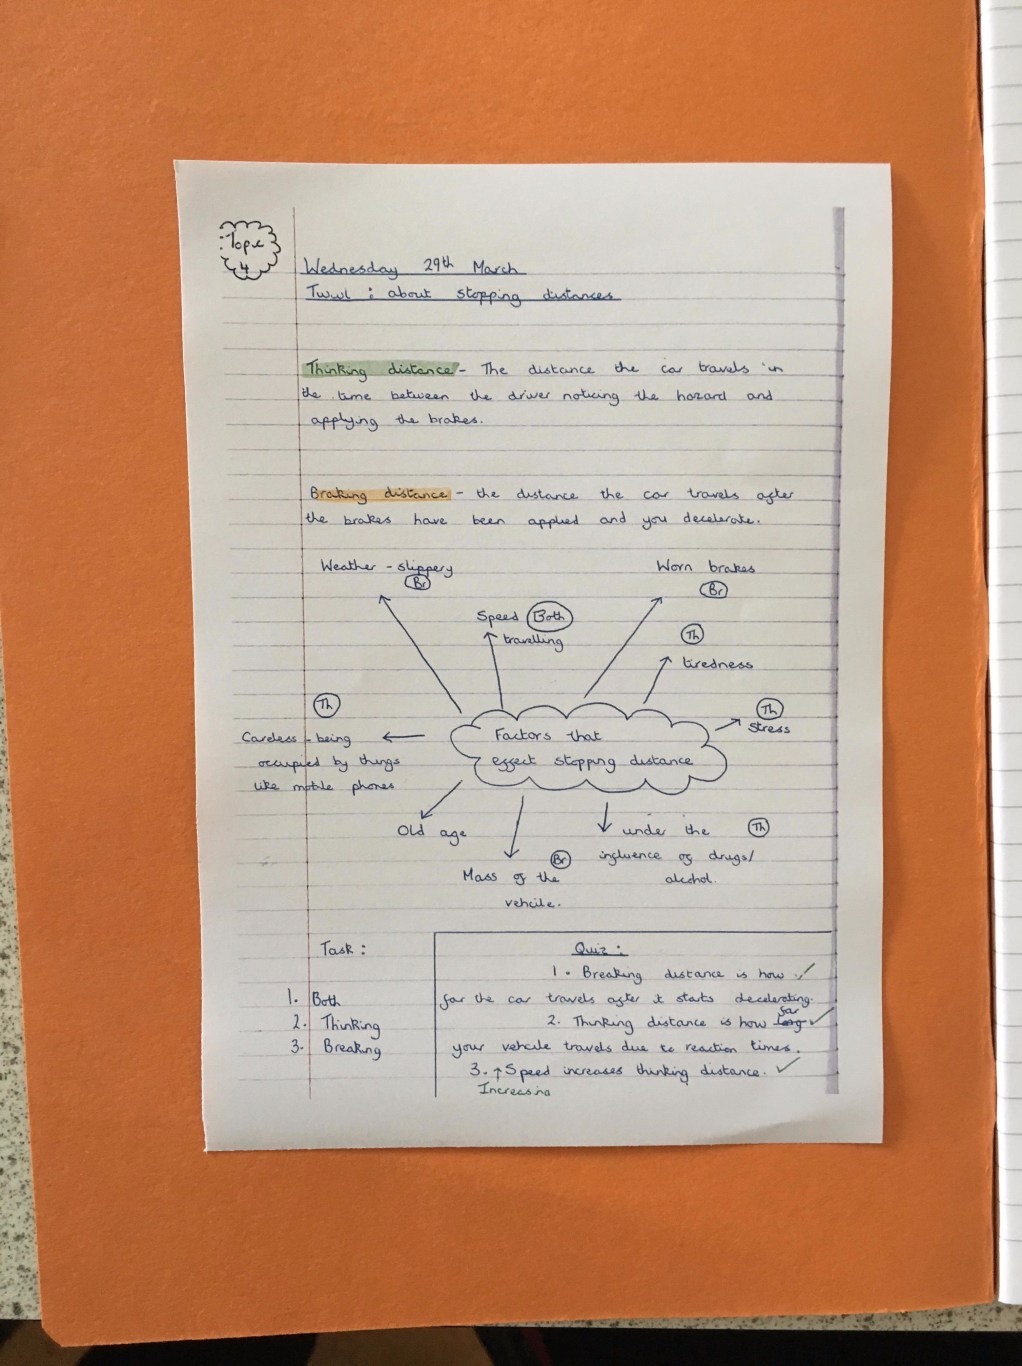 Topic
4
Wednesday 29th March
Twwl : about stopping distances
Thinking distance - The distance the car travels in
the time between the driver noticing the hazard and
applying the brakes.
Braking distance - the distance the car travels after
the brakes have been applied and you decelerate.
Weather - slippery
Br
Worn brakes
Br
Speed Both
travelling
Th
tiredness
Th
Stress
Th
Careless - being
occupied by things
like mobile phones
Factors that
effect stopping distance
Old age
Br
Mass of the
vehcile.
under the Th
influence of drugs/
alcohol.
Task :
1. Both
2. Thinking
3. Breaking
Quiz :
1. Breaking distance is how
far the car travels after it starts decelerating.
far
2. Thinking distance is how long
your vehcile travels due to reaction times.
3. ↑ Speed increases thinking distance.
Increasing